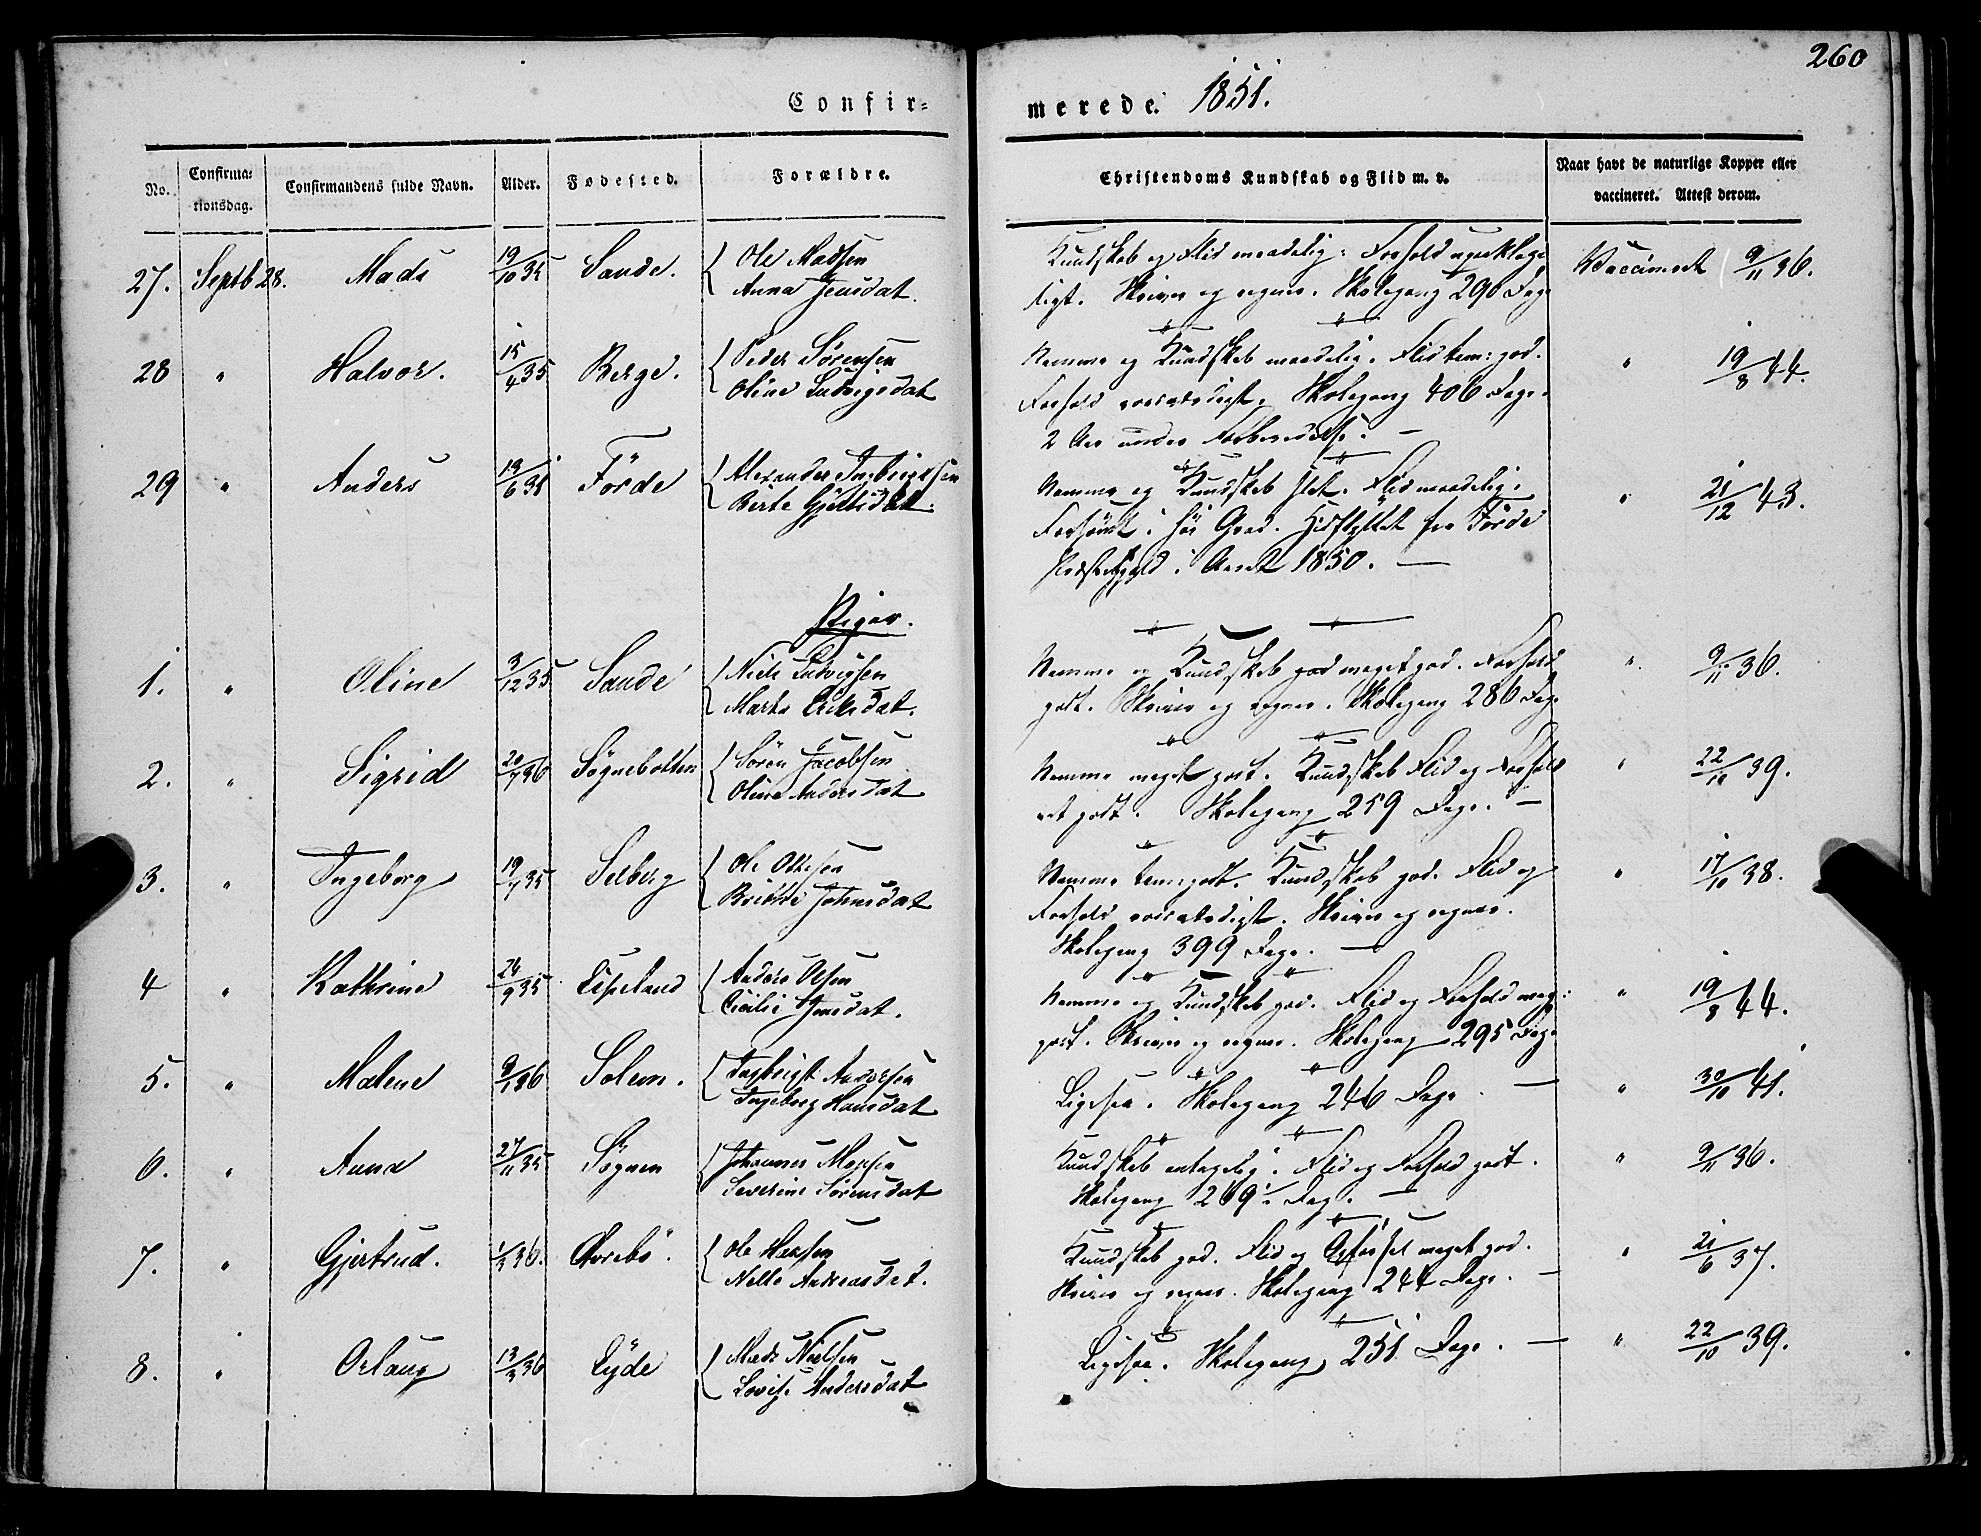 260
Confir=
merede. 1851.
No.
Confirma=
tionsdag.
Confirmandens fulde Navn.
Alder.
Fødested.
Forældre.
Christendoms Kundskab og Flid m. v.
Naar havt de naturlige Kopper eller
vaccineret. Attest derom.
27. Septb 28. Mads 19/10 35 Sande. Ole Madsen
Anna Jensdat.
Kundskab og Flid maadelig. Forhold upaaklage
ligt. Skriver og regner. Skolegang 296 Dage
Vaccineret 9/11 36.
28 " Halvor. 15/4 35 Berge. Peder Sørensen
Oline Ludvigsdat
Nemme og Kundskab maadelig. Flid tem: god.
Forhold roesværdigt. Skolegang 406 Dage.
2 Aar under Forberedelse. —
" 19/8 44.
29 " Anders 13/6 31 Förde Alexander Ingbrigtsen
Berte
Nemme og Kundskab slet. Flid maadelig.
Forsömt i høi Grad. Hidflyttet fra Förde
Præstegjeld i Aaret 1850. —
" 21/12 43.
Piger.
1. " Oline 3/12 35 Sande Niels Ludvigsen
Marta Eriksdat.
Nemme og Kundskab god meget god. Forhold
godt. Skriver og regner. Skolegang 286 Dage
" 9/11 36.
2. " Sigrid 20/7 36 Sögnebotten Sören Jacobsen
Oline Andersdat
Nemme meget godt. Kundskab Flid og Forhold
ret godt. Skolegang 259 Dage. —
" 22/10 39.
3. " Ingeborg 19/7 35 Selberg Ole Ottesen
Brithe Johnsdat
Nemme temgodt. Kundskab god. Flid og
Forhold roesværdigt. Skriver og regner.
Skolegang 399 Dage. —
" 17/10 38.
4 " Kathrine 24/9 35 Espeland Anders Olsen
Cicilie Jensdat.
Nemme og Kundskab god. Flid og Forhold meg:
godt. Skriver og regner. Skolegang 295 Dage
" 19/8 44.
5. " Malene 9/1 36 Solem. Ingbrigt Andersen
Ingeborg Hansdat
Ligesaa. Skolegang 246 Dage —
" 30/10 41.
6. " Anna 27/11 35 Sögnen Johannes
Severine Sörensdat
Kundskab antagelig. Flid og Forhold godt.
Skolegang 269½ Dag. —
" 9/11 36.
7. " Gjertrud. 1/3 36. Ole Hansen
Nille Andreasdat.
Kundskab god. Flid og Opførsel meget god.
Skriver og regner. Skolegang 244 Dage. —
" 21/6 37.
8. " Orlaug 13/3 36 Eyde Mads Nielsen
Lovise Andersdat
Ligesaa. Skolegang 251 Dage. —
" 22/10 39.